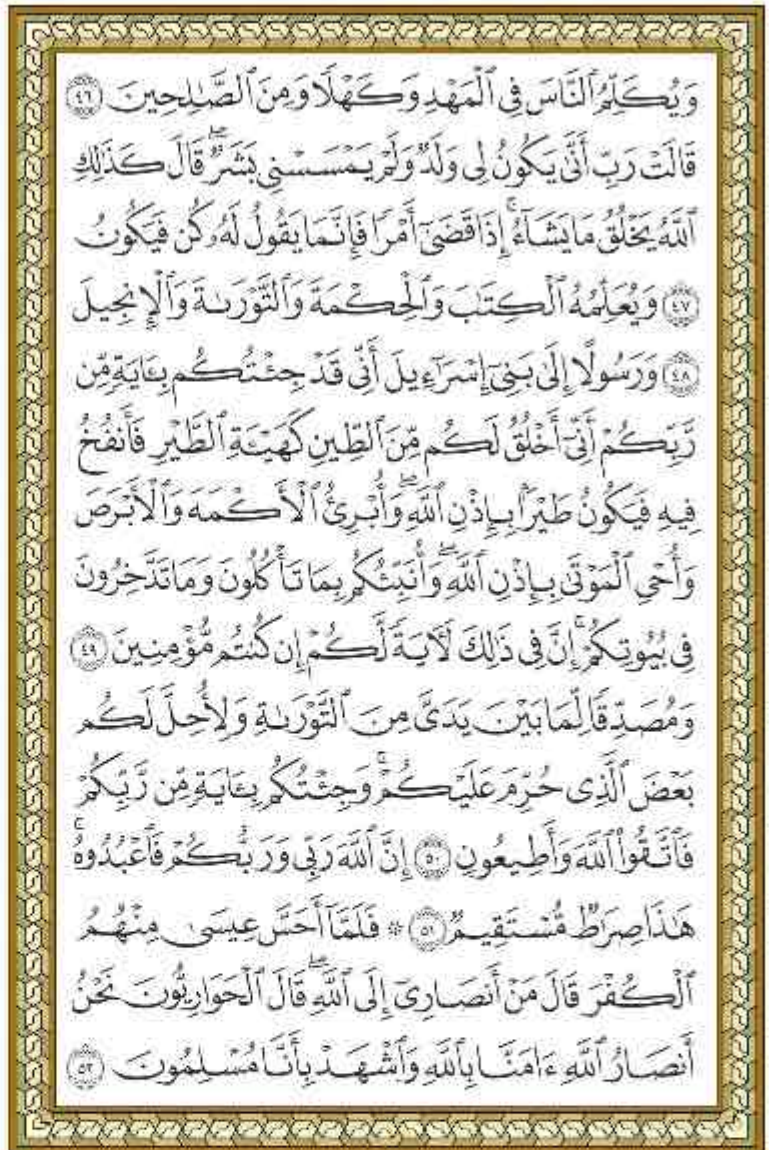 وَيُكَلِّمُ ٱلنَّاسَ فِي ٱلْمَهْدِ وَكَهْلًا وَمِنَ ٱلصَّٰلِحِينَ ٤٦
قَالَتْ رَبِّ أَنَّىٰ يَكُونُ لِي وَلَدٌ وَلَمْ يَمْسَسْنِي بَشَرٌۖ قَالَ كَذَٰلِكِ
ٱللَّهُ يَخْلُقُ مَا يَشَآءُۚ إِذَا قَضَىٰٓ أَمْرًا فَإِنَّمَا يَقُولُ لَهُۥ كُن فَيَكُونُ
٤٧ وَيُعَلِّمُهُ ٱلْكِتَٰبَ وَٱلْحِكْمَةَ وَٱلتَّوْرَىٰةَ وَٱلْإِنجِيلَ
٤٨ وَرَسُولًا إِلَىٰ بَنِيٓ إِسْرَٰٓءِيلَ أَنِّي قَدْ جِئْتُكُم بِـَٔايَةٍ مِّن
رَّبِّكُمْ أَنِّيٓ أَخْلُقُ لَكُم مِّنَ ٱلطِّينِ كَهَيْـَٔةِ ٱلطَّيْرِ فَأَنفُخُ
فِيهِ فَيَكُونُ طَيْرًۢا بِإِذْنِ ٱللَّهِۖ وَأُبْرِئُ ٱلْأَكْمَهَ وَٱلْأَبْرَصَ
وَأُحْيِ ٱلْمَوْتَىٰ بِإِذْنِ ٱللَّهِۖ وَأُنَبِّئُكُم بِمَا تَأْكُلُونَ وَمَا تَدَّخِرُونَ
فِي بُيُوتِكُمْۚ إِنَّ فِي ذَٰلِكَ لَـَٔايَةً لَّكُمْ إِن كُنتُم مُّؤْمِنِينَ ٤٩
وَمُصَدِّقًا لِّمَا بَيْنَ يَدَيَّ مِنَ ٱلتَّوْرَىٰةِ وَلِأُحِلَّ لَكُم
بَعْضَ ٱلَّذِي حُرِّمَ عَلَيْكُمْۚ وَجِئْتُكُم بِـَٔايَةٍ مِّن رَّبِّكُمْ
فَٱتَّقُوا۟ ٱللَّهَ وَأَطِيعُونِ ٥٠ إِنَّ ٱللَّهَ رَبِّي وَرَبُّكُمْ فَٱعْبُدُوهُۚ
هَٰذَا صِرَٰطٌ مُّسْتَقِيمٌ ٥١ ۞ فَلَمَّآ أَحَسَّ عِيسَىٰ مِنْهُمُ
ٱلْكُفْرَ قَالَ مَنْ أَنصَارِيٓ إِلَى ٱللَّهِۖ قَالَ ٱلْحَوَارِيُّونَ نَحْنُ
أَنصَارُ ٱللَّهِ ءَامَنَّا بِٱللَّهِ وَٱشْهَدْ بِأَنَّا مُسْلِمُونَ ٥٢